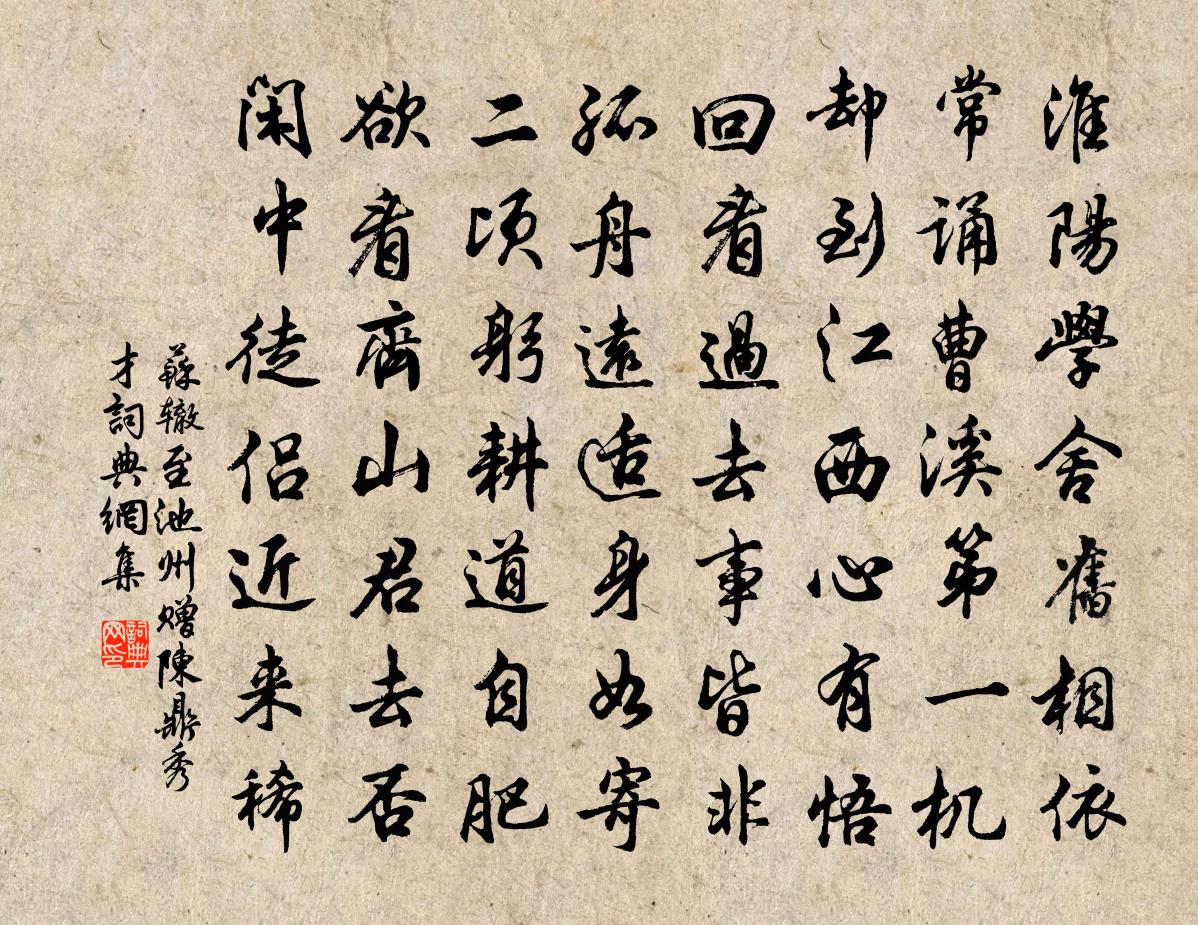 淮陽學舍舊相依
常誦曹溪第一机
却到江西心有悟
回看過去事皆非
孤舟遠适身如寄
二頃躬耕道自肥
欲看齊山君去否
闲中徒侣近来稀
蘇辙至池州赠陳鼎秀
才詞典網集
詞典
网印